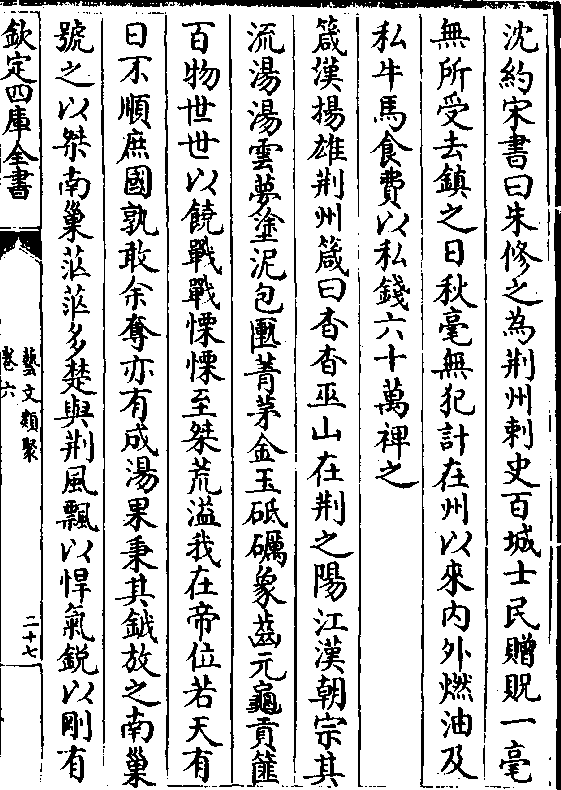 沈約宋書曰朱修之為荆州刺史百城士民贈貺一毫
無所受去鎮之日秋毫無犯計在州以來内外燃油及
私牛馬食費以私錢六十萬裨之
箴漢揚雄荆州箴曰杳杳巫山在荆之陽江漢朝宗其
流湯湯雲夢塗泥包匭菁茅金玉砥礪象齒元龜貢篚
百物世世以饒戰戰慄慄至桀荒溢我在帝位若天有
日不順庶國孰敢余奪亦有成湯果秉其鉞放之南巢
號之以桀南巢茫茫多楚與荆風飄以悍氣銳以剛有
欽定四庫全書
藝文類聚
卷六
二十七